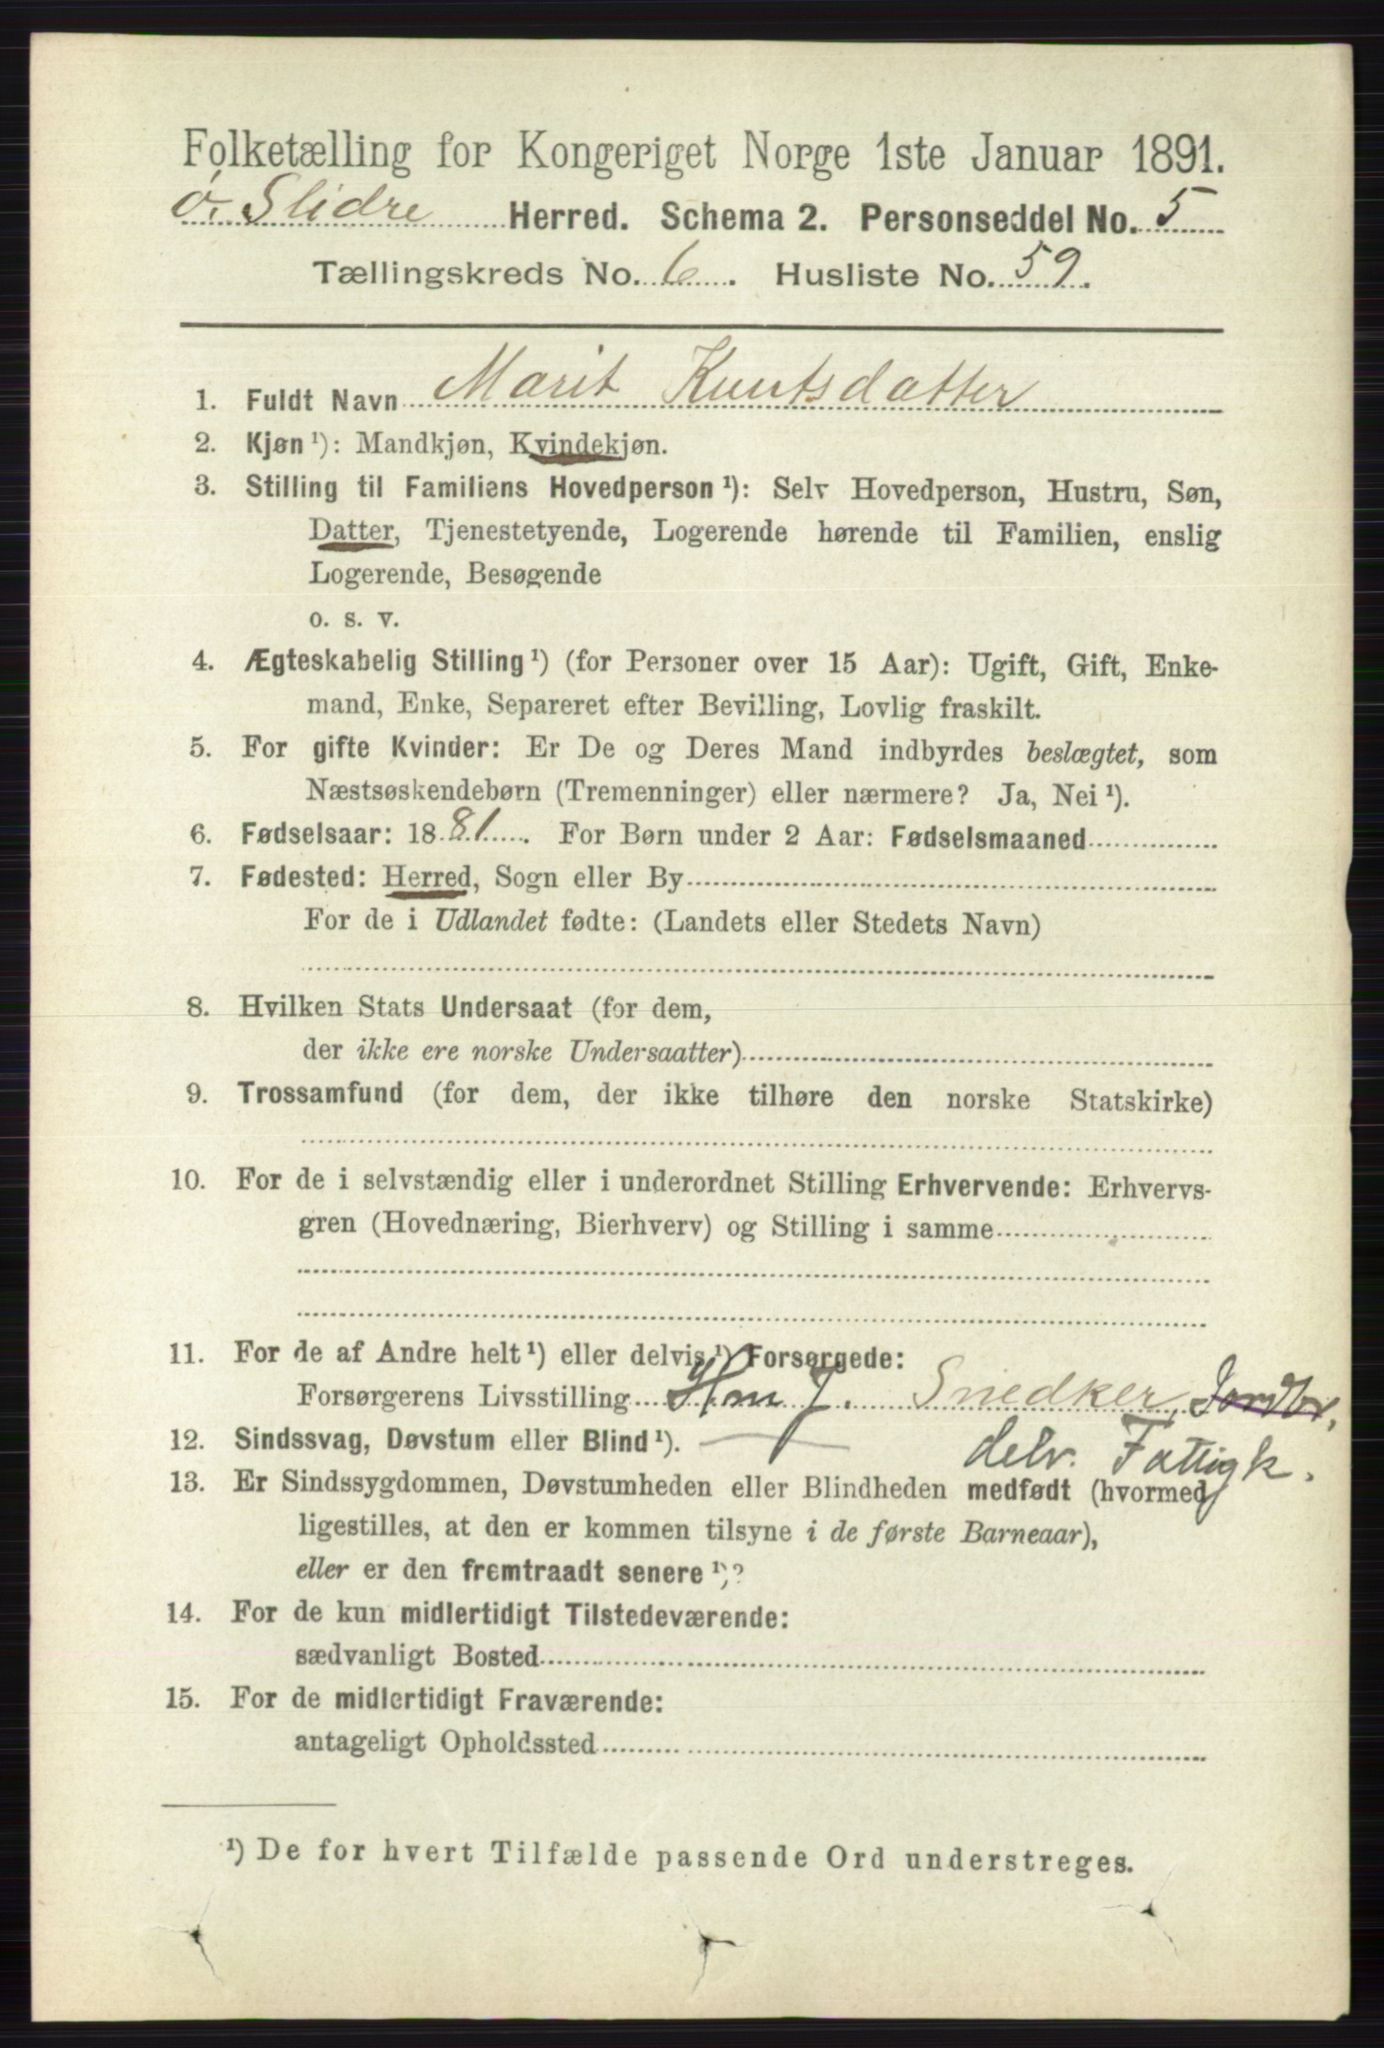 Folketælling for Kongeriget Norge 1ste Januar 1891.
Ø. Slidre Herred. Schema 2. Personseddel No. 5
Tællingskreds No. 6. Husliste No. 59.
1. Fuldt Navn Marit Knutsdatter
2. Kjøn ¹): Mandkjøn, Kvindekjøn.
3. Stilling til Familiens Hovedperson ¹): Selv Hovedperson, Hustru, Søn,
Datter, Tjenestetyende, Logerende hørende til Familien, enslig
Logerende, Besøgende
o. s. v.
4. Ægteskabelig Stilling ¹) (for Personer over 15 Aar): Ugift, Gift, Enke-
mand, Enke, Separeret efter Bevilling, Lovlig fraskilt.
5. For gifte Kvinder: Er De og Deres Mand indbyrdes beslægtet, som
Næstsøskendebørn (Tremenninger) eller nærmere? Ja, Nei ¹).
6. Fødselsaar: 1881. For Børn under 2 Aar: Fødselsmaaned
7. Fødested: Herred, Sogn eller By
For de i Udlandet fødte: (Landets eller Stedets Navn)
8. Hvilken Stats Undersaat (for dem,
der ikke ere norske Undersaatter)
9. Trossamfund (for dem, der ikke tilhøre den norske Statskirke)
10. For de i selvstændig eller i underordnet Stilling Erhvervende: Erhvervs-
gren (Hovednæring, Bierhverv) og Stilling i samme
11. For de af Andre helt ¹) eller delvis ¹) Forsørgede:
Forsørgerens Livsstilling Hm J. Snedker, Jordbr,
12. Sindssvag, Døvstum eller Blind ¹). delv. Fattigk.
13. Er Sindssygdommen, Døvstumheden eller Blindheden medfødt (hvormed
ligestilles, at den er kommen tilsyne i de første Barneaar),
eller er den fremtraadt senere ¹)?
14. For de kun midlertidigt Tilstedeværende:
sædvanligt Bosted
15. For de midlertidigt Fraværende:
antageligt Opholdssted
¹) De for hvert Tilfælde passende Ord understreges.